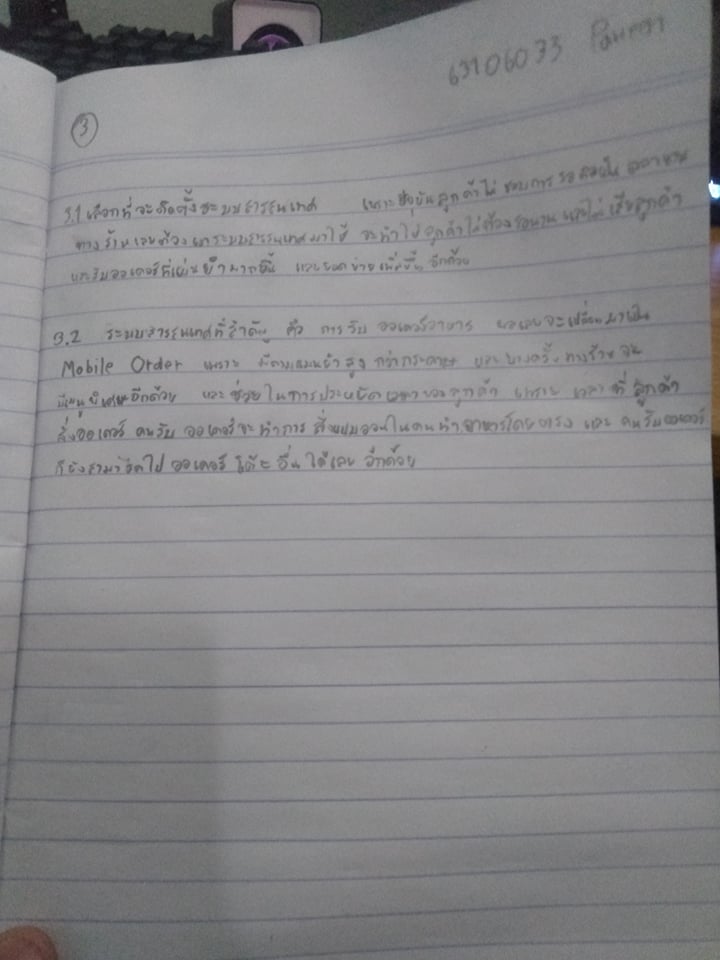 63106033
3
3.1 เลือกที่จะติดตั้งระบบสารสนเทศ เพราะปัจุบันลูกค้าไม่ชอบการรอคอยใน
ทางร้านเลยต้องเอาระบบสารสนเทศมาใช้ จะทำให้ลูกค้าไม่ต้องรอนาน และไม่เสียลูกค้า
และรับออเดอร์ที่แม่นยำมากขึ้น และยอดขายเพิ่มขึ้นอีกด้วย
3.2 ระบบสารสนเทศที่สำคัญ คือ การรับ ออเดอร์อาหาร ผมเลยจะเปลี่ยนมาเป็น
Mobile Order เพราะ มีความแม่นยำสูง กว่ากระดาษ และบางครั้งทางร้าน
มีเมนูพิเศษอีกด้วย และ ช่วยในการประหยัดเวลาของลูกค้า เพราะ เวลา ที่ ลูกค้า
สั่งออเดอร์ คนรับ ออเดอร์จะทำการ สั่งแบบออนไนคนทำอาหารโดยตรง และ คนรับออเดอร์
ก็ยังสามารถไป ออเดอร์ โต๊ะ อื่น ได้เลย อีกด้วย